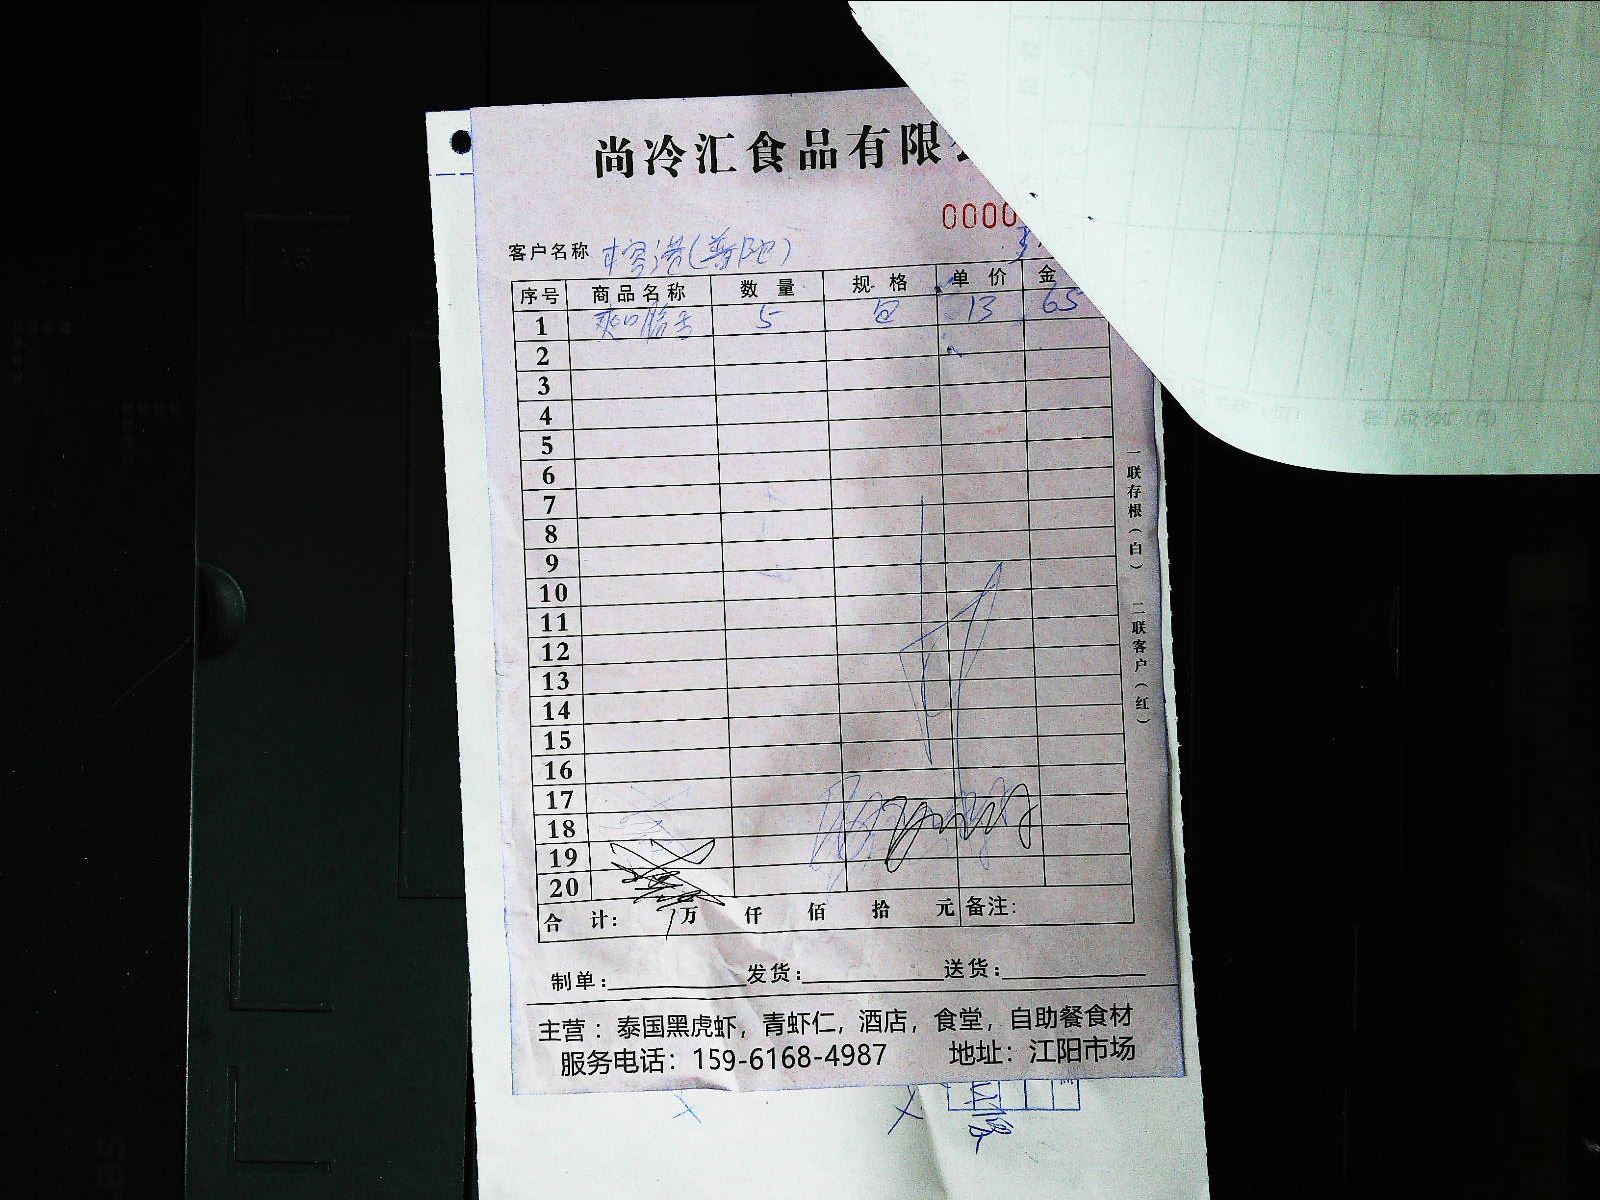 尚冷汇食品有限
0000
客户名称 (普陀)
序号 商品名称 数量 规格 单价 金
1 爽口脆 5 包 13 65
2
3
4
5
6
7
8
9
10
11
12
13
14
15
16
17
18
19
20
合计: 万 仟 佰 拾 元 备注:
制单: 发货: 送货:
主营：泰国黑虎虾，青虾仁，酒店，食堂，自助餐食材
服务电话：159-6168-4987 地址：江阳市场
一联存根（白） 二联客户（红）